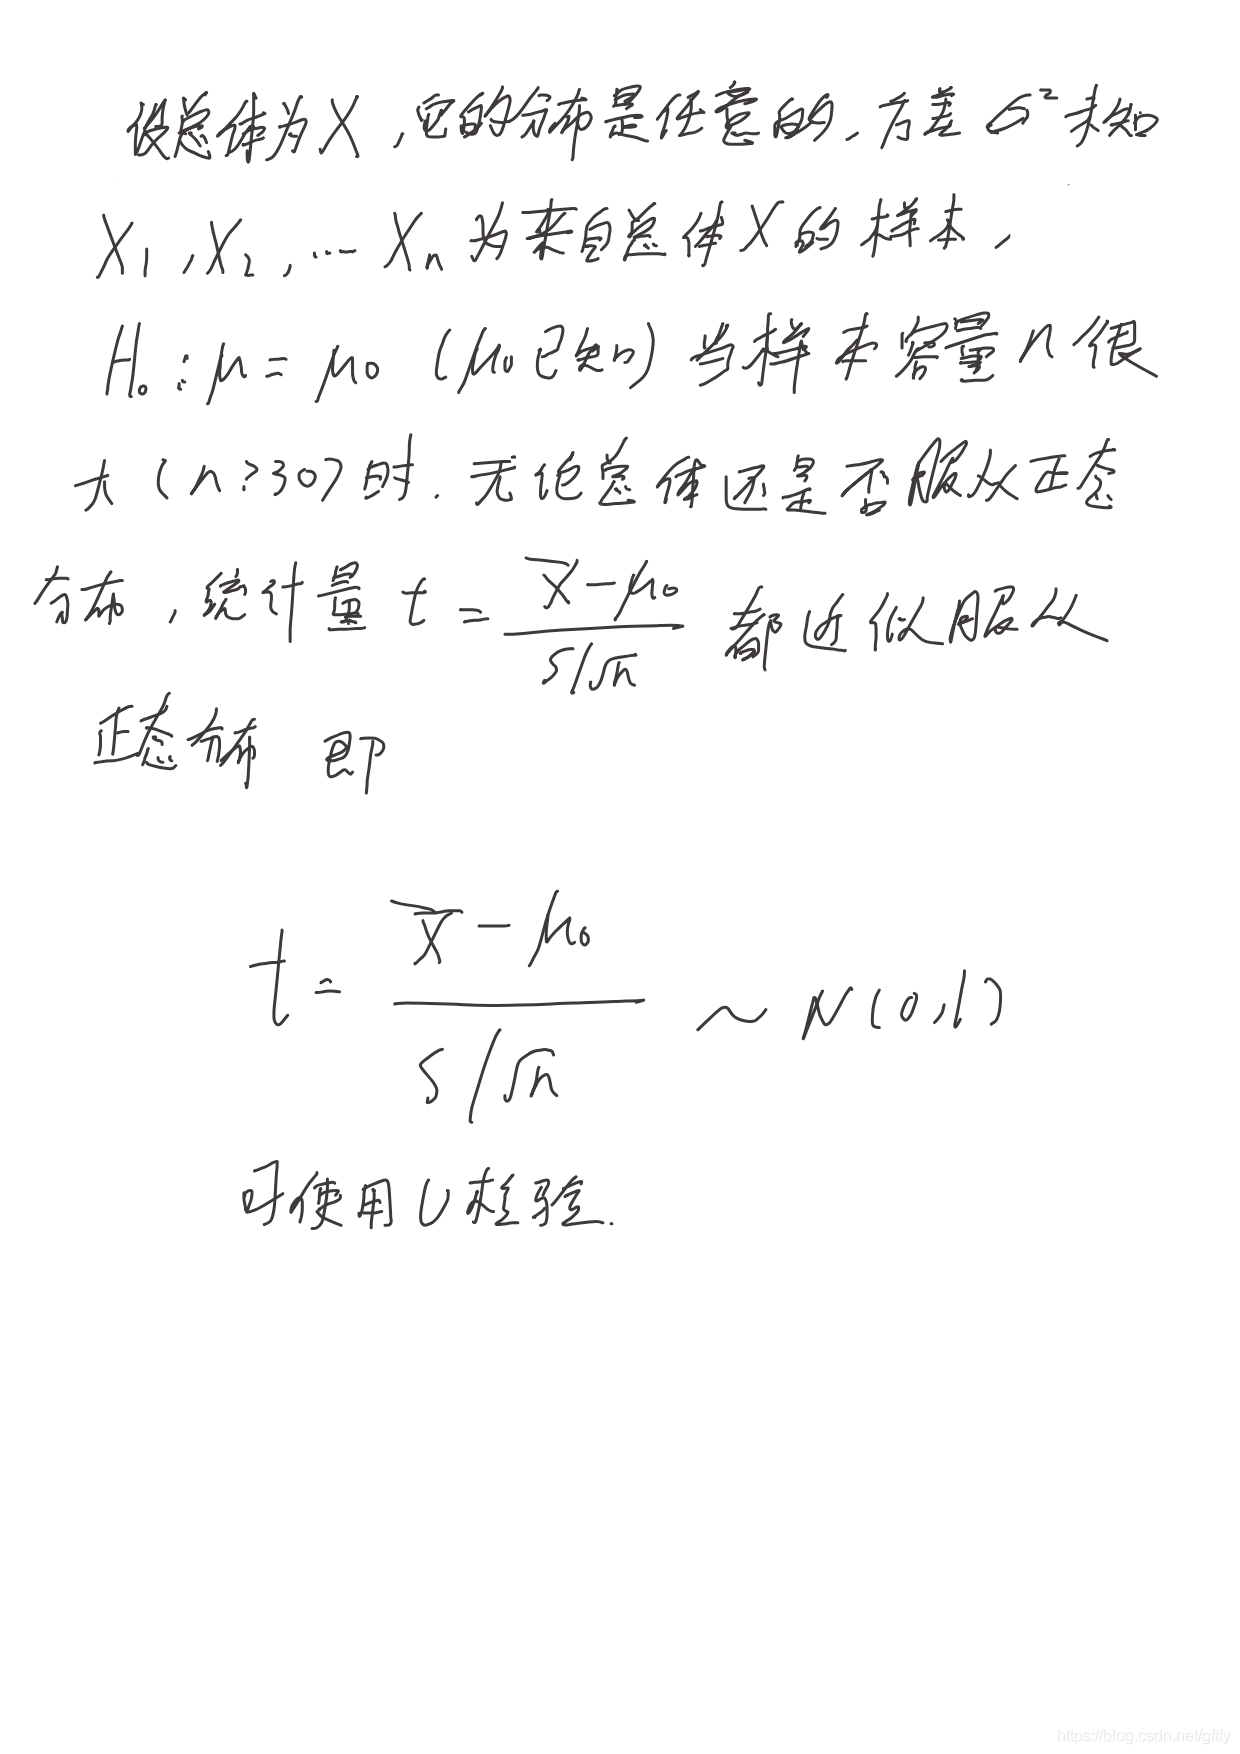 设总体为X,它的分布是任意的,方差σ²未知
X₁,X₂,…Xₙ为来自总体X的样本,
H₀:μ=μ₀(μ₀已知)当样本容量n很
大(n>30)时.无论总体还是否服从正态
分布,统计量 t = (X̄-μ₀)/(S/√n) 都近似服从
正态分布 即
t = (X̄-μ₀)/(S/√n) ~ N(0,1)
可使用U检验.
https://blog.csdn.net/gftfy